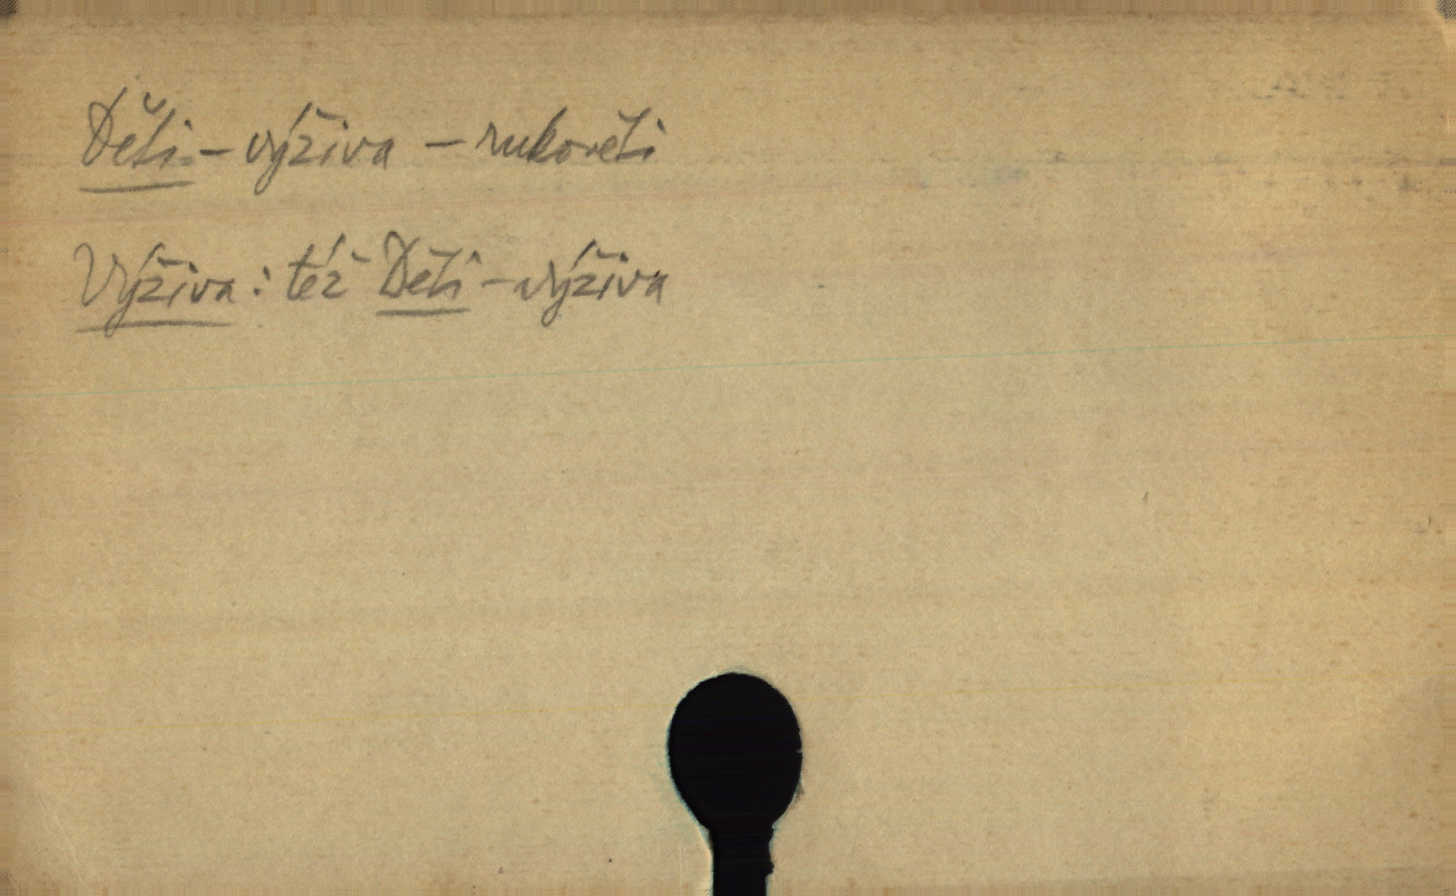 Děti – výživa – rukověti
Výživa: též Děti – výživa